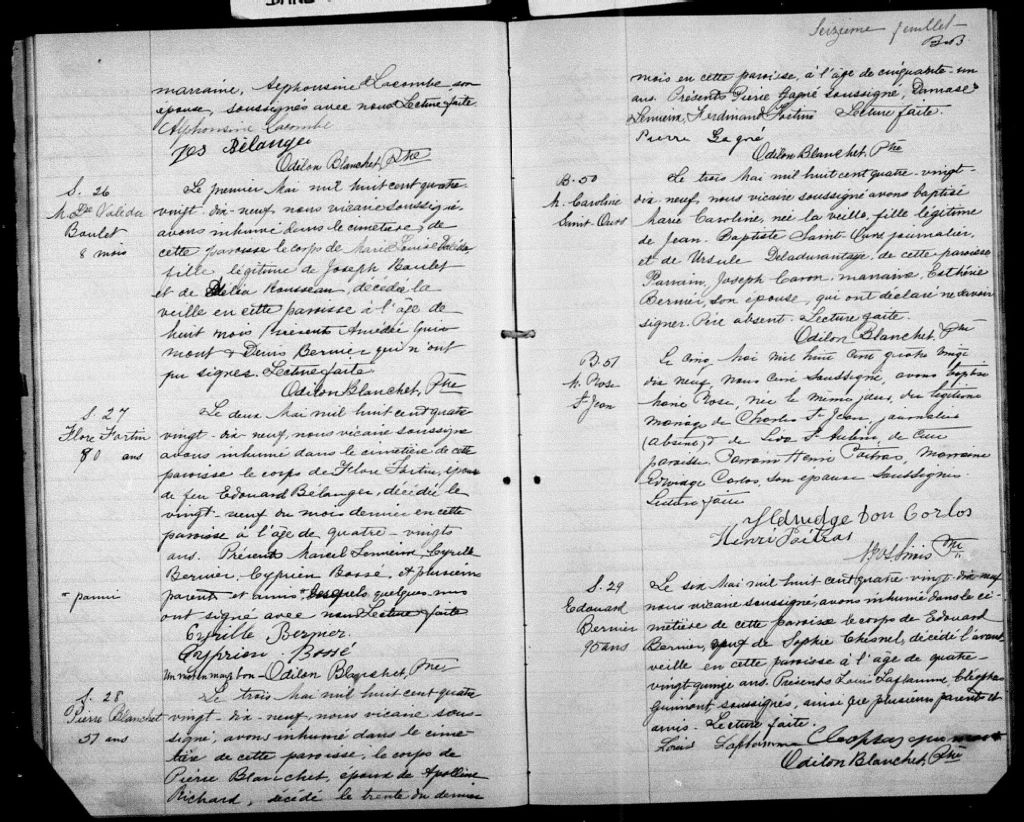 marraine, Alphonsine Lacombe son
épouse, soussignés avec nous Lecture faite
Alphonsine Lacombe
Jos Bélanger
Odilon Blanchet, Ptre
S. 26
M. Lse Valéda
Boulet
8 mois
Le premier Mai mil huit cent quatre-
vingt-dix-neuf, nous vicaire soussigné,
avons inhumé dans le cimetière de
cette paroisse le corps de Marie Louise Valéda,
fille légitime de Joseph Boulet
et de Délia Rousseau, décédée la
veille en cette paroisse à l'âge de
huit mois Présents Amédé Guim
mont & Denis Bernier qui n'ont
pu signer. Lecture faite
Odilon Blanchet, Ptre
S. 27
Flore Fortin
80 ans
Le deux Mai mil huit cent quatre
vingt-dix-neuf, nous vicaire soussigné
avons inhumé dans le cimetière de cette
paroisse le corps de Flore Fortin, épouse
de feu Edouard Bélanger, décédée le
vingt-neuf du mois dernier en cette
paroisse à l'âge de quatre-vingts
ans. Présents Marcel Lemieux, Cyrille
Bernier, Cyprien Bossé, et plusieurs
parents et amis lesquels quelques-uns
" parmi
ont signé avec nous Lecture faite
Cyrille Bernier.
Cyprien Bossé
Un mot en marg bon - Odilon Blanchet, Ptre
S. 28
Pierre Blanchet
51 ans
Le trois Mai mil huit cent quatre
vingt-dix-neuf, nous vicaire sous-
signé, avons inhumé dans le cime-
tière de cette paroisse, le corps de
Pierre Blanchet, époux de Apolline
Richard, décédé le trente du dernier
Seizième feuillet
mois en cette paroisse, à l'âge de cinquante-un
ans. Présents Pierre Gagné soussigné, Damase
Lemieux, Ferdinand Fortin Lecture faite.
Pierre Gagné
Odilon Blanchet, Ptre
B. 50
M. Caroline
Saint-Ours
Le trois Mai mil huit cent quatre-vingt-
dix-neuf, nous vicaire soussigné avons baptisé
Marie Caroline, née la veille, fille légitime
de Jean-Baptiste Saint-Ours journalier,
et de Ursule Deladurantaye, de cette paroisse
Parrain, Joseph Caron, marraine, Esthérie
Bernier, son épouse, qui ont déclaré ne savoir
signer. Père absent. Lecture faite.
Odilon Blanchet, Ptre
B. 51
M. Rose
St Jean
Le cinq Mai mil huit cent quatre vingt
dix neuf, nous curé soussigné, avons baptisé
Marie Rose, née le même jour, du légitime
mariage de Charles St Jean, journalier
(absent) & de St Aubin, de cette
paroisse. Parrain Henri Poitras, Marraine
Eldridge Corlos, son épouse soussignés
Lecture faite
Eldrudge Don Carlos
Henri Poitras
Ptre
S. 29
Edouard
Bernier
95 ans
Le six Mai mil huit cent quatre-vingt-dix-neuf
nous vicaire soussigné, avons inhumé dans le ci-
metière de cette paroisse le corps de Edouard
Bernier, veuf de Sophie Chesnel, décédé l'avant
veille en cette paroisse à l'âge de quatre-
vingt-quinze ans. Présents Louis Laflamme Cléophas
Guimont soussignés, ainsi que plusieurs parents et
amis. Lecture faite.
Louis Laflamme Cleophas guimont
Odilon Blanchet, Ptre